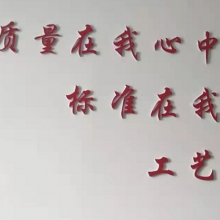 质量在我心中
标准在我
工艺